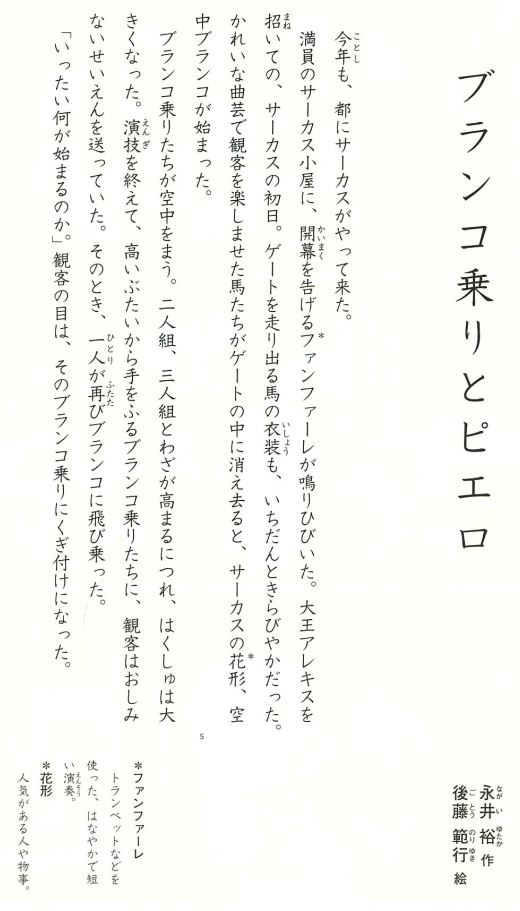 ブランコ乗りとピエロ
永井裕 作
ながいゆたか
後藤範行 絵
ごとうのりゆき
今年も、都にサーカスがやって来た。
ことし
満員のサーカス小屋に、開幕を告げるファンファーレが鳴りひびいた。大王アレキスを
かいまく
*
招いての、サーカスの初日。ゲートを走り出る馬の衣装も、いちだんときらびやかだった。
まね
いしょう
かれいな曲芸で観客を楽しませた馬たちがゲートの中に消え去ると、サーカスの花形、空
*
中ブランコが始まった。
5
ブランコ乗りたちが空中をまう。二人組、三人組とわざが高まるにつれ、はくしゅは大
きくなった。演技を終えて、高いぶたいから手をふるブランコ乗りたちに、観客はおしみ
えんぎ
ないせいえんを送っていた。そのとき、一人が再びブランコに飛び乗った。
ひとり
ふたた
「いったい何が始まるのか。」観客の目は、そのブランコ乗りにくぎ付けになった。
*ファンファーレ
トランペットなどを
使った、はなやかで短
い演奏。
えんそう
*花形
人気がある人や物事。